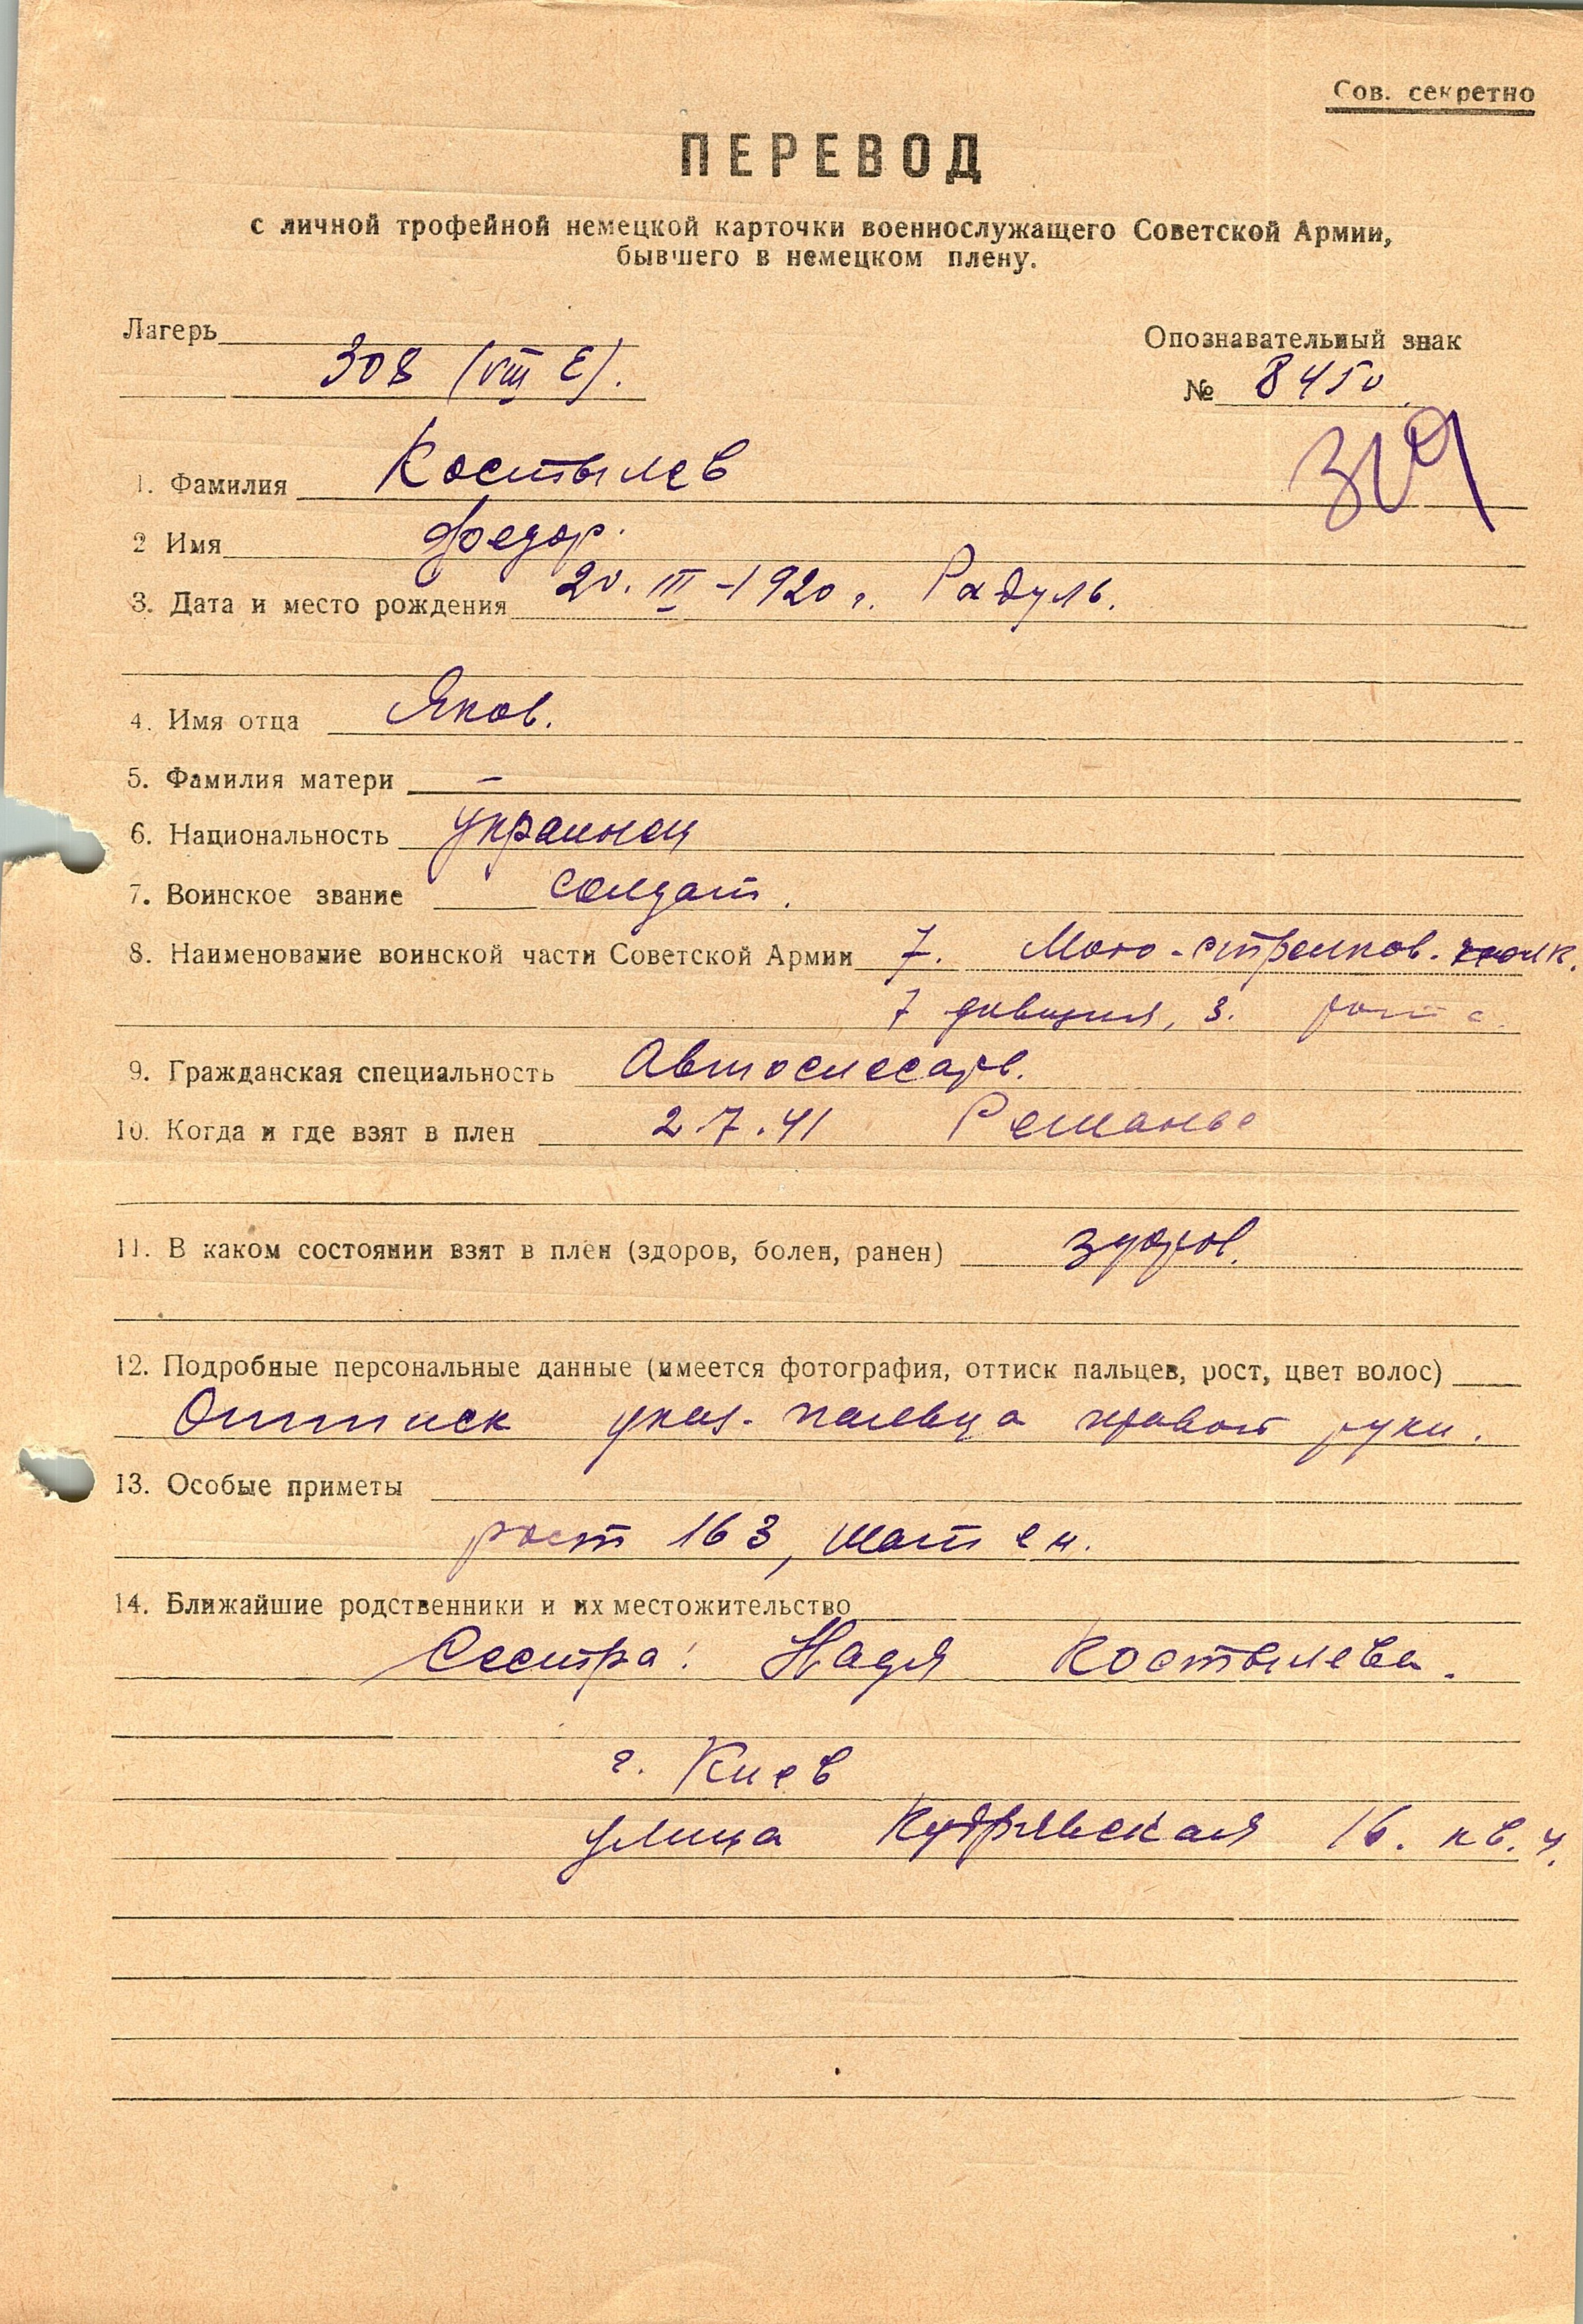 Сов. секретно
ПЕРЕВОД
с личной трофейной немецкой карточки военнослужащего Советской Армии,
бывшего в немецком плену.
Лагерь
308 (VIII E).
Опознавательный знак
№ 8450
1. Фамилия Костылев
2 Имя Федор.
3. Дата и место рождения 20. III - 1920 г. Радуль.
4. Имя отца Яков.
5. Фамилия матери —
6. Национальность украинец
7. Воинское звание солдат.
8. Наименование воинской части Советской Армии 7. Мото-стрелков. полк.
7 дивизия, 3. рота.
9. Гражданская специальность Автослесарь.
10. Когда и где взят в плен 2.7.41
11. В каком состоянии взят в плен (здоров, болен, ранен) здоров.
12. Подробные персональные данные (имеется фотография, оттиск пальцев, рост, цвет волос)
Оттиск указ. пальца правой руки.
13. Особые приметы
рост 163, шатен.
14. Ближайшие родственники и их местожительство
Сестра: Надя Костылева.
г. Киев
улица Кудрявская 16. кв. 4.